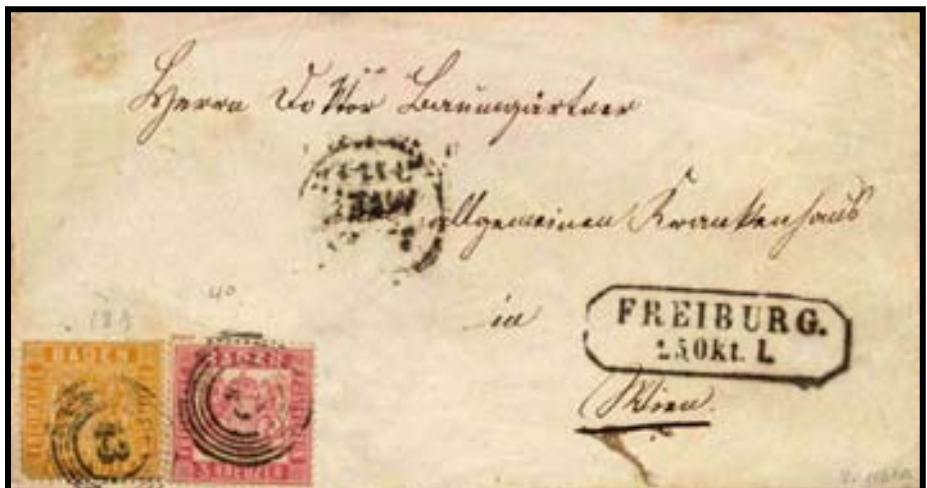 Herrn Doktor Baumgärtner
allgemeinen Krankenhaus
in
FREIBURG.
25 Okt. I.
Wien.
40
BADEN
3 KREUZER